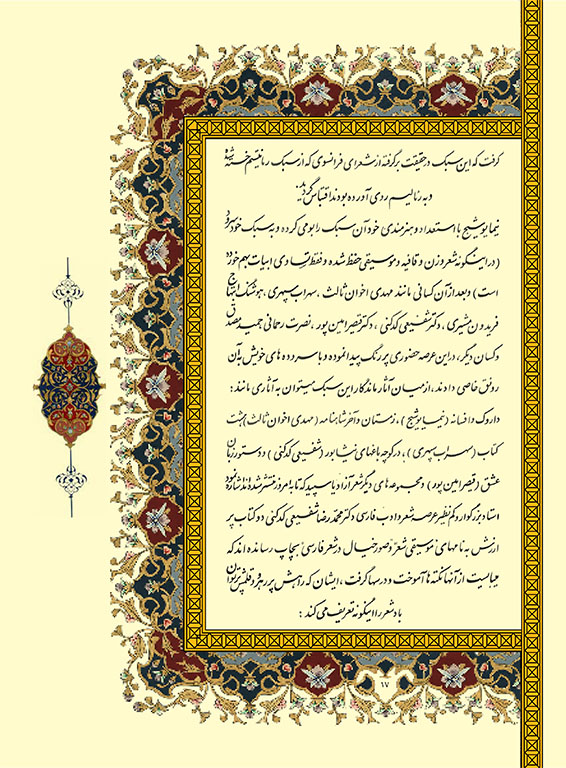 گرفت که این سبک در حقیقت برگرفته از شعرای فرانسوی که از سبک رمانتیسم خسته شده
و به رئالیسم روی آورده بودند اقتباس گردید.
نیما یوشیج با استعداد و هنرمندی خود آن سبک را بومی کرده و به سبک خود درآورد
(در اینگونه شعر وزن و قافیه و موسیقی حفظ شده و فقط تساوی ابیات بهم خورده
است) و بعد از آن کسانی مانند مهدی اخوان ثالث ، سهراب سپهری ، هوشنگ ابتهاج
فریدون مشیری ، دکتر شفیعی کدکنی ، دکتر قیصر امین پور ، نصرت رحمانی حمید مصدق
و کسان دیگر ، در این عرصه حضوری پر رنگ پیدا نموده و با سروده های خویش به آن
رونق خاصی دادند ، از میان آثار ماندگار این سبک میتوان به آثاری مانند :
داروک و افسانه (نیما یوشیج) ، زمستان و آخر شاهنامه (مهدی اخوان ثالث) هشت
کتاب (سهراب سپهری) ، در کوچه باغهای نشابور (شفیعی کدکنی) دستور زبان
عشق (قیصر امین پور) و مجموعه های دیگر شعر آزاد یا سپید که تا به امروز منتشر شده اند اشاره نمود
استاد بزرگوار و کم نظیر عرصه شعر و ادب فارسی دکتر محمد رضا شفیعی کدکنی دو کتاب پر
ارزش به نامهای موسیقی شعر و صور خیال در شعر فارسی بچاپ رسانده اند که
میبایست از آنها نکته ها آموخت و درسها گرفت ، ایشان که راهش پر رهرو و قلمش توان
باد شعر را اینگونه تعریف می کند :
۱۷